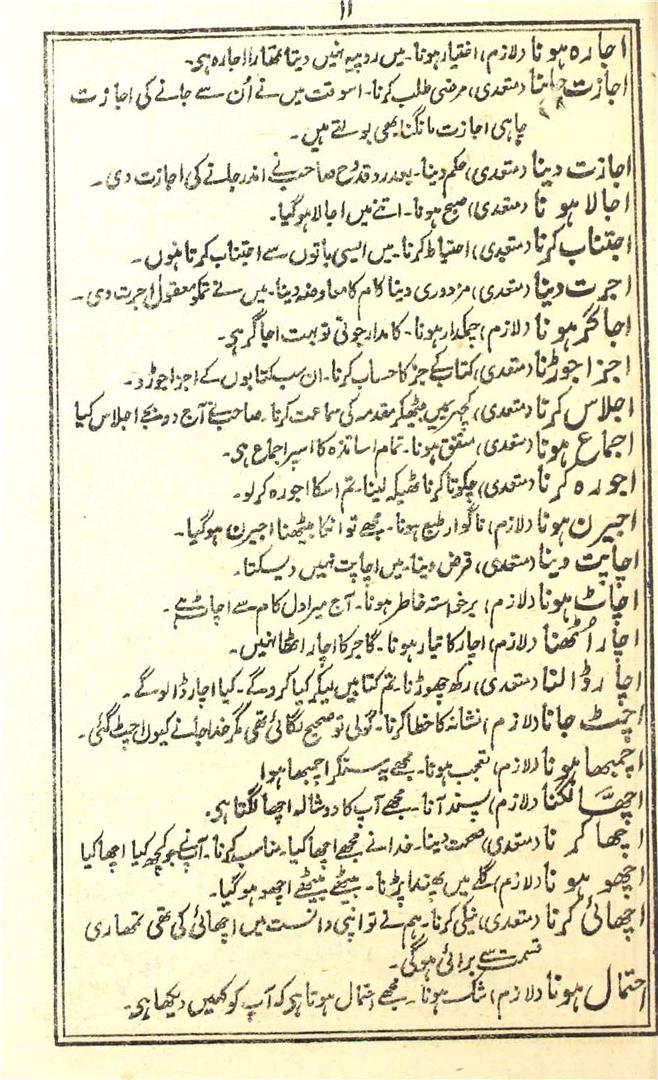 ۱۱
اجارہ ہونا (لازم) اختیار ہونا۔ میں روپیہ نہیں دیتا تمھارا اجارہ ہی۔
اجازت چاہنا (متعدی) مرضی طلب کرنا۔ اسوقت میں نے اُن سے جانے کی اجازت
چاہی اجازت مانگنا بھی بولتے ہیں۔
اجازت دینا (متعدی) حکم دینا۔ صاحب نے اندر جانے کی اجازت دی۔
اجالا ہونا (متعدی) صبح ہونا۔ اتنے میں اجالا ہوگیا۔
اجتناب کرنا (متعدی) احتیاط کرنا۔ میں ایسی باتوں سے اجتناب کرتا ہوں۔
اجرت دینا (متعدی) مزدوری دینا کام کا معاوضہ دینا۔ میں نے تمکو معقول اجرت دی۔
اجاگر ہونا (لازم) چمکدار ہونا۔ کامدار جوتی تو بہت اجاگر ہی۔
اجزا جوڑنا (متعدی) کتاب کے جز کا حساب کرنا۔ ان سب کتابوں کے اجزا جوڑو۔
اجلاس کرنا (متعدی) کچہری میں بیٹھکر مقدمہ کی سماعت کرنا۔ صاحب نے آج دو بجے اجلاس کیا
اجماع ہونا (متعدی) متفق ہونا۔ تمام اساتذہ کا اسپر اجماع ہی۔
اجورہ کرنا (متعدی) چکوتا کرنا ٹھیکہ لینا۔ تم اسکا اجورہ کرلو۔
اجیرن ہونا (لازم) ناگوار طبع ہونا۔ مجھے تو انکا بیٹھنا اجیرن ہوگیا۔
اچاپت دینا (متعدی) قرض دینا۔ میں اچاپت نہیں دیسکتا۔
اچاٹ ہونا (لازم) برخواستہ خاطر ہونا۔ آج میرا دل کام سے اچاٹ ہے۔
اچار اُٹھنا (لازم) اچار کا تیار ہونا۔ گاجر کا اچار اٹھا نہیں۔
اچار ڈالنا (متعدی) رکھ چھوڑنا۔ تم کتابیں لیکر کیا کروگے۔ کیا اچار ڈالوگے۔
اچٹ جانا (لازم) نشانہ کا خطا کرنا۔ گولی تو صحیح لگائی تھی مگر خدا جانے کیوں اچٹ گئی۔
اچمبھا ہونا (لازم) تعجب ہونا۔ مجھے یہ سنکر اچمبھا ہوا
اچھّا لگنا (لازم) پسند آنا۔ مجھے آپ کا دوشالہ اچھا لگتا ہی۔
اچھا کرنا (متعدی) صحت دینا۔ خدا نے مجھے اچھا کیا۔ مناسب کرنا۔ آپ نے جو کچھ کیا اچھا کیا
اچھو ہونا (لازم) گلے میں پھندا پڑنا۔ بیٹھے بیٹھے اچھو ہوگیا۔
اچھائی کرنا (متعدی) نیکی کرنا۔ ہم نے تو اپنی دانست میں اچھائی کی تھی تمھاری
قسمت سے برائی ہوگی۔
احتمال ہونا (لازم) شک ہونا۔ مجھے احتمال ہوتا ہی کہ آپ کو کہیں دیکھا ہی۔